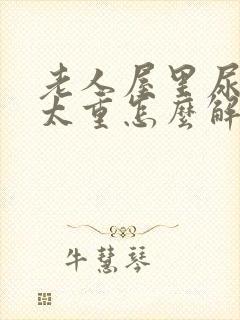 老人屋里尿
太重怎麼解
牛慧琴